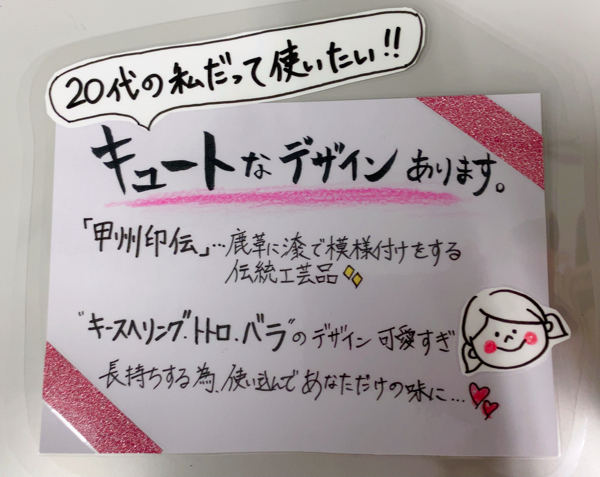 20代の私だって使いたい!!
キュートなデザインあります。
「甲州印伝」…鹿革に漆で模様付けをする
伝統工芸品
"キースヘリング.トトロ.バラ"のデザイン可愛すぎ
長持ちする為、使い込んであなただけの味に…